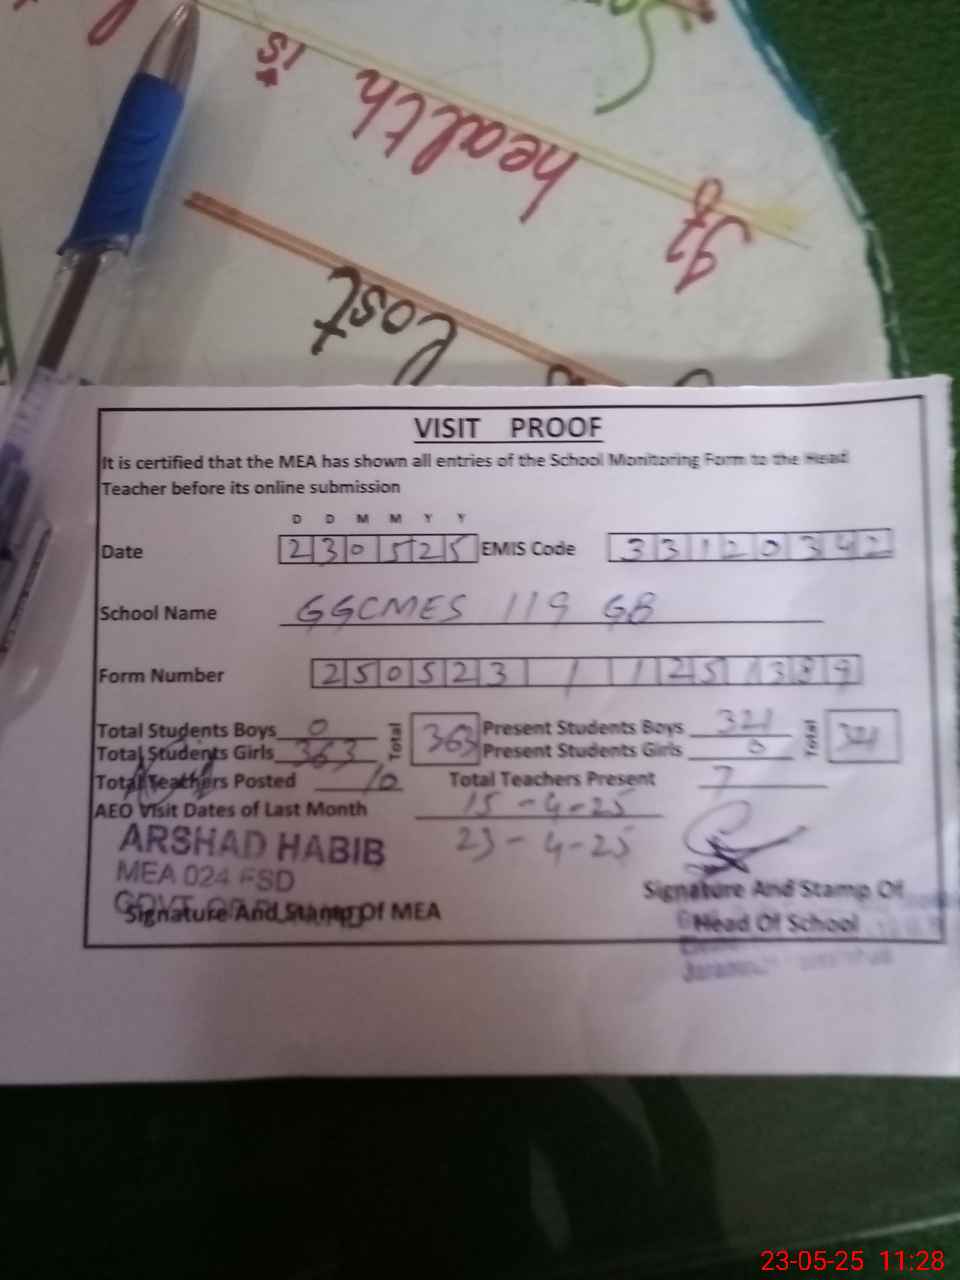 is
health
If
lost
VISIT PROOF
It is certified that the MEA has shown all entries of the School Monitoring Form to the Head
Teacher before its online submission
D D M M Y Y
Date 230525 EMIS Code 33120342
School Name GGCMES 119 GB
Form Number 250523 / 125
Total Students Boys 0 Total 363 Present Students Boys 321 Total 321
Total Students Girls 363 Present Students Girls 0
Total Teachers Posted 10 Total Teachers Present 7
AEO Visit Dates of Last Month 15-4-25
23-4-25
ARSHAD HABIB
MEA 024 FSD
Signature And Stamp Of MEA
Signature And Stamp Of
Head Of School
23-05-25 11:28